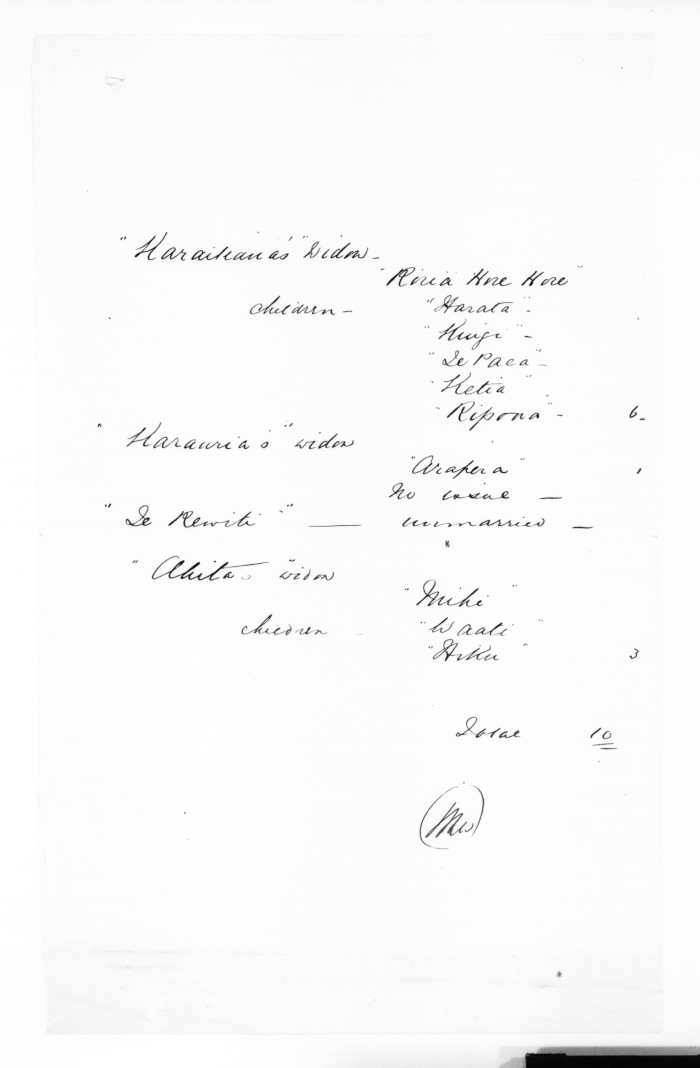 "Karaitiana's" Widow -
"Roria Hore Hore"
children - "Harata" -
"Kingi" -
"Te Paea" -
"Ketia" -
"Ripona" - 6 -
"Karauria's" widow
"Arapera" 1
No issue —
"Te Rewiti" — unmarried —
"Ahita's" widow
"Mihi"
children - "Waati"
"Hiku" 3
Total 10